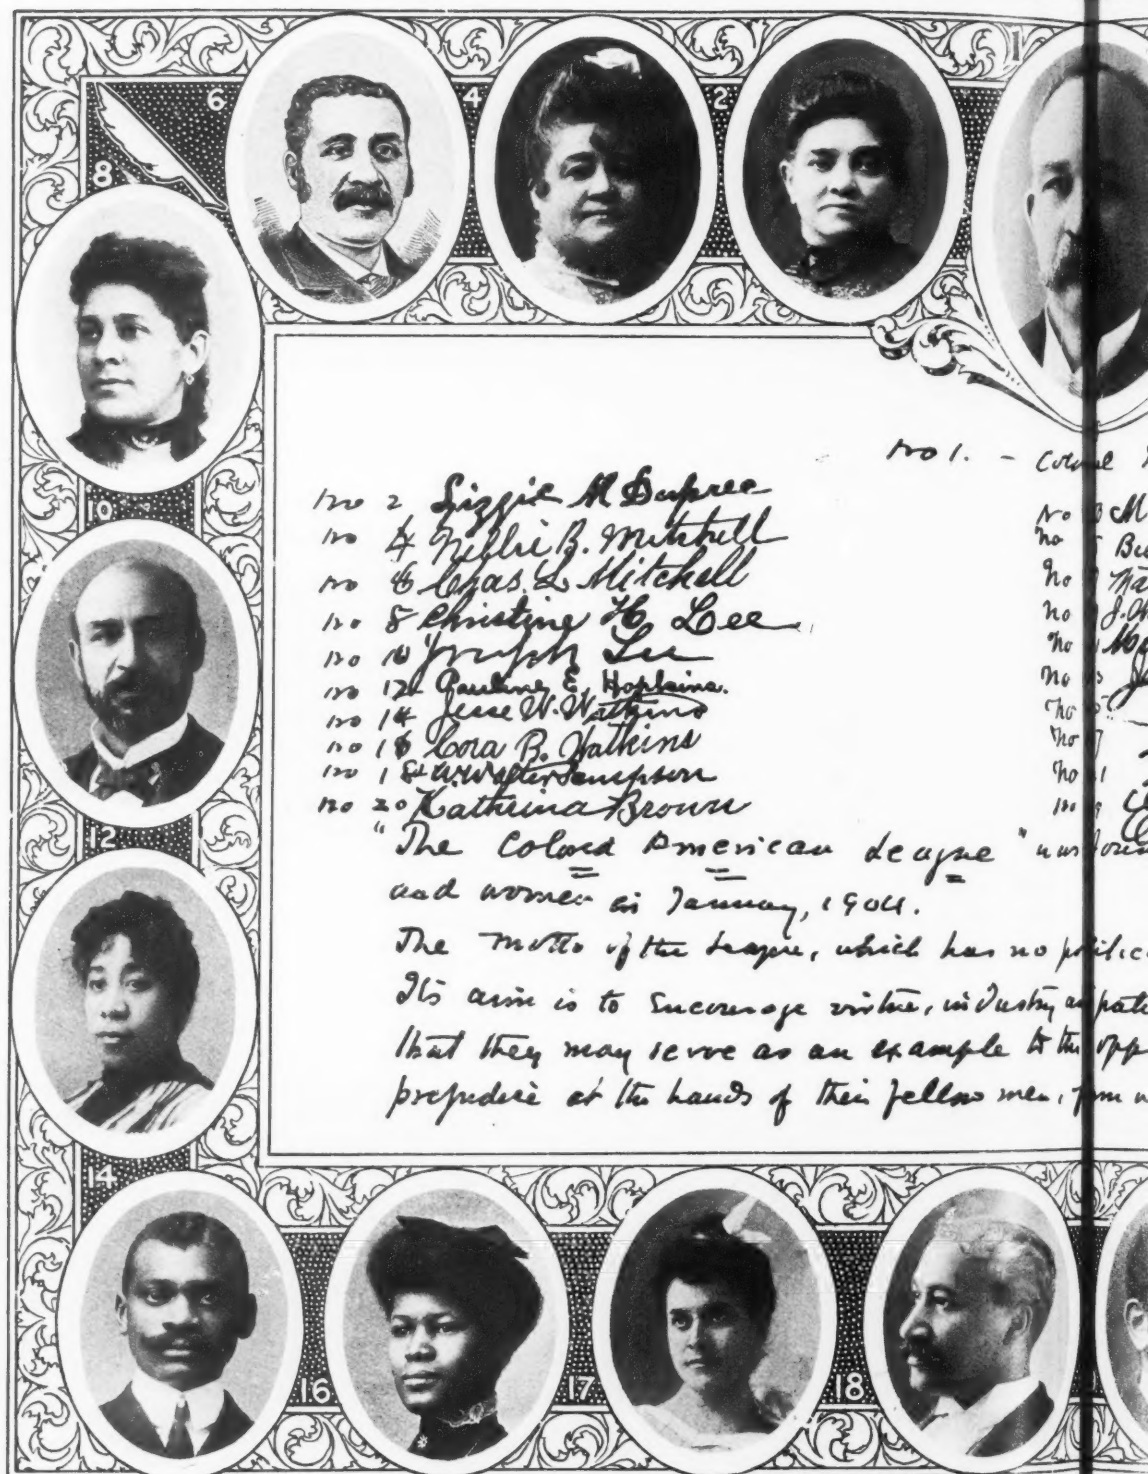 6
4
2
1
8
10
12
14
16
17
18
No 1. - Colonel
No 2 Lizzie M Dupree
No 4 Nellie B. Mitchell
No 6 Chas. L. Mitchell
No 8 Christine H. Lee
No 10 Joseph Lee
No 12 Pauline E. Hopkins.
No 14 Jesse W. Watkins
No 16 Cora B. Watkins
No 18 W. Walter Sampson
No 20 Kathrina Brown
No
No 5
No
No J.
No
No
No 5
No 7
No
No
"The Colored American League" was
and women in January, 1904.
The motto of the League, which has no
Its aim is to encourage virtue, industry
that they may serve as an example to the
prejudice at the hands of their fellow men,